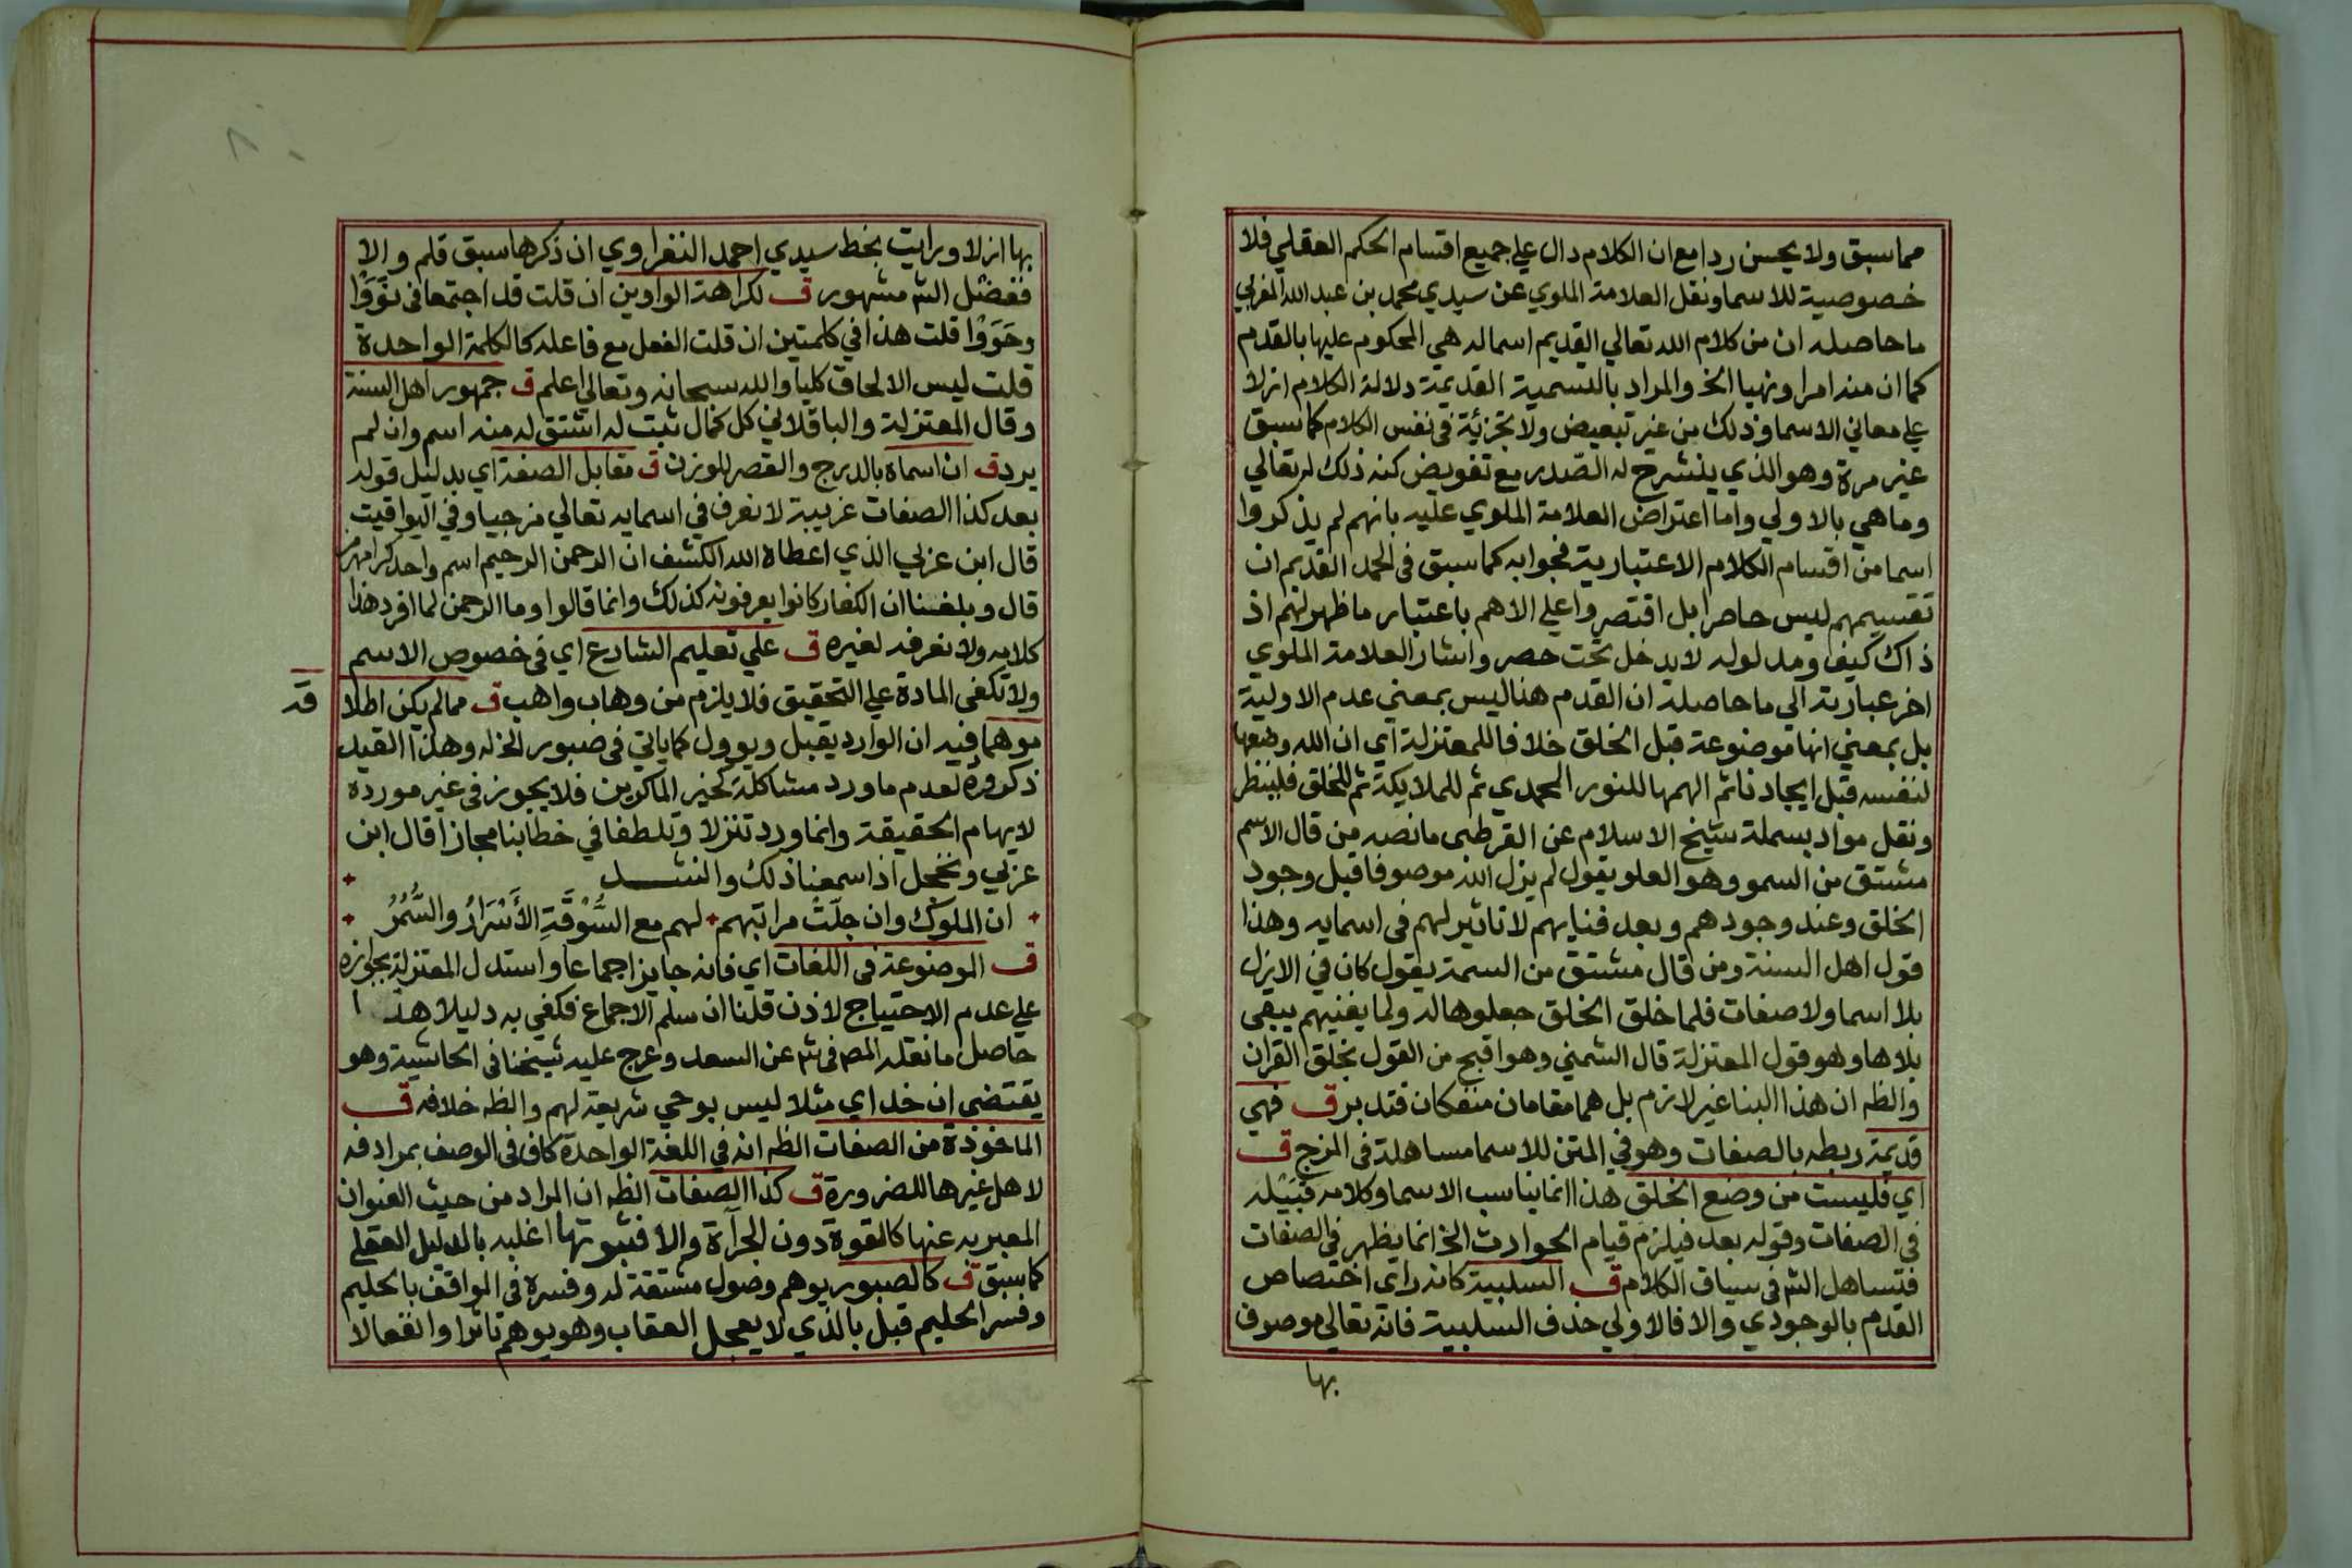 مما سبق ولا يحسن ردا مع ان الكلام دال علي جميع اقسام الحكم العقلي فلا
خصوصية للاسما ونقل العلامة الملوي عن سيدي محمد بن عبد الله المغربي
ما حاصله ان من كلام الله تعالي القديم اسما له هي المحكوم عليها بالقدم
كما ان منه امرا ونهيا الخ والمراد بالتسمية القديمة دلالة الكلام ازلا
علي معاني الاسما وذلك من غير تبعيض ولا تجزئة في نفس الكلام كما سبق
غير مرة وهو الذي ينشرح له الصدر مع تفويض كنه ذلك له تعالي
وما هي بالاولي واما اعتراض العلامة الملوي عليه بانهم لم يذكروا
اسما من اقسام الكلام الاعتبارية فجوابه كما سبق في الحمد القديم ان
تقسيمهم ليس حاصرا بل اقتصروا علي الاهم باعتبار ما ظهر لهم اذ
ذاك كيف ومدلوله لا يدخل تحت حصر واشار العلامة الملوي
اخر عبارته الي ما حاصله ان القدم هنا ليس بمعني عدم الاولية
بل بمعني انها موضوعة قبل الخلق خلافا للمعتزلة اي ان الله وضعها
لنفسه قبل ايجادنا ثم الهمها للنور المحمدي ثم للملايكة ثم للخلق فلينظر
ونقل مواد بسملة شيخ الاسلام عن القرطبي ما نصه من قال الاسم
مشتق من السمو وهو العلو يقول لم يزل الله موصوفا قبل وجود
الخلق وعند وجودهم وبعد فنايهم لا تاثير لهم في اسمايه وهذا
قول اهل السنة ومن قال مشتق من السمة يقول كان في الازل
بلا اسما ولا صفات فلما خلق الخلق جعلوها له ولما يفنيهم يبقي
بلاها وهو قول المعتزلة قال الشمني وهو اقبح من القول بخلق القران
والظه ان هذا البنا غير لازم بل هما مقامان منفكان فتدبر ق فهي
قديمة ربطه بالصفات وهو في المتن للاسما مساهلة في المزج ق
اي فليست من وضع الخلق هذا انما يناسب الاسما وكلامه قبيله
في الصفات وقوله بعد فيلزم قيام الحوادث الخ انما يظهر في الصفات
فتساهل الش في سياق الكلام ق السلبية كانه راي اختصاص
القدم بالوجودي والا فالاولي حذف السلبية فانه تعالي موصوف
بها
بها ازلا ورايت بخط سيدي احمد النفراوي ان ذكرها سبق قلم والا
ففضل الش مشهور ق لكراهة الواوين ان قلت قد اجتمعا في نوَوْا
وحَوَوْا قلت هذا في كلمتين ان قلت الفعل مع فاعله كالكلمة الواحدة
قلت ليس الالحاق كليا والله سبحانه وتعالي اعلم ق جمهور اهل السنة
وقال المعتزلة والباقلاني كل كمال ثبت له اشتق له منه اسم وان لم
يرد ق ان اسماه بالدرج والقصر للوزن ق مقابل الصفة اي بدليل قوله
بعد كذا الصفات غريبة لا نعرف في اسمايه تعالي مزجيا وفي اليواقيت
قال ابن عربي الذي اعطاه الله الكشف ان الرحمن الرحيم اسم واحد كرامهرمز
قال وبلغنا ان الكفار كانوا يعرفونه كذلك وانما قالوا وما الرحمن لما افرد هذا
كلامه ولا نعرفه لغيره ق علي تعليم الشارع اي في خصوص الاسم
ولا تكفي المادة علي التحقيق فلا يلزم من وهاب واهب ق مما لم يكن اطلا
قه
موهما فيه ان الوارد يقبل ويوول كما ياتي في صبور الخ له وهذا القيد
ذكروه لعدم ما ورد مشاكلة كخير الماكرين فلا يجوز في غير مورده
لايهام الحقيقة وانما ورد تنزلا وتلطفا في خطابنا مجازا قال ابن
عربي ونخجل اذا سمعنا ذلك وانشد
ان الملوك وان جلّت مراتبهم لهم مع السُّوْقَةِ الأَسْرَارُ والسَّمَرُ
ق الموضوعة في اللغات اي فانه جايز اجماعا واستدل المعتزلة بجوازه
علي عدم الاحتياج لاذن قلنا ان سلم الاجماع فكفي به دليلا هذا
حاصل ما نقله المص في ش عن السعد وعرج عليه شيخنا في الحاشية وهو
يقتضي ان خداي مثلا ليس بوحي شريعة لهم والظه خلافه ق
الماخوذة من الصفات الظه انه في اللغة الواحدة كاف في الوصف بمرادفه
لاهل غيرها للضرورة ق كذا الصفات الظه ان المراد من حيث العنوان
المعبر به عنها كالقوة دون الجرآة والا فثبوتها اغلبه بالدليل العقلي
كما سبق ق كالصبور يوهم وصول مشقة له وفسره في المواقف بالحليم
وفسر الحليم قبل بالذي لا يعجل العقاب وهو يوهم تاثرا وانفعالا